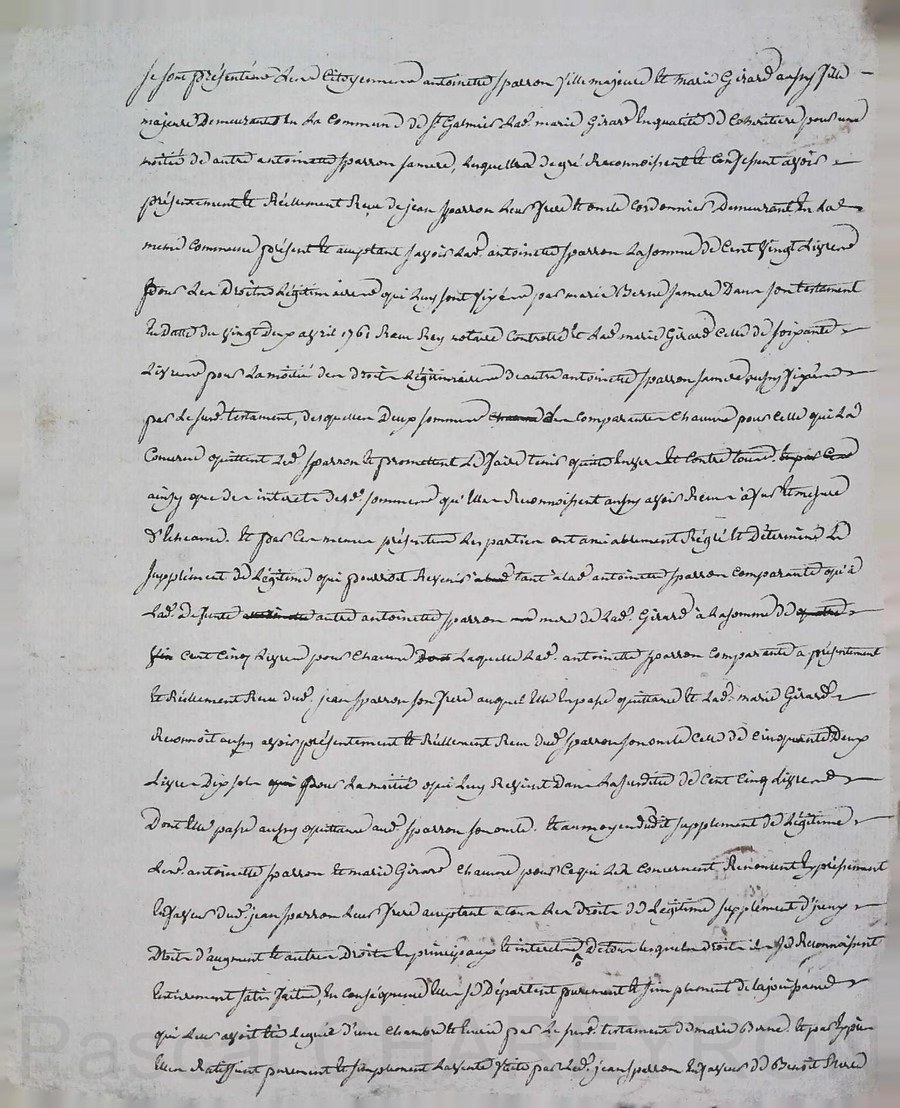 Se sont présentées les Citoyennes antoinette sparron fille majeure Et marie Girard aussy fille
majeure Demeurantes En La Commune de St Galmier Lad. marie Girard En qualité de Coheritiere pour une
moitié de autre antoinette sparron sa mere, Lesquelles de gré Reconnoissent Et Confessent avoir
présentement Et Réellement Reçu de jean sparron Leur frere Et oncle Cordonnier Demeurant En lad.
meme Commune présent Et aceptant savoir Lad. antoinette sparron La somme de Cent vingt Livres
pour Les Droits Légitimaires qui Luy sont fixés par marie Berne sa mere Dans son testament
En Datte du vingt Deux avril 1761 Reçu Rey notaire Controllé Et Lad. marie Girard Celle de soixante
Livres pour La moitié des droits Légitimaires de autre antoinette sparron sa mere aussy fixés
par Le susd. testament, desquelles Deux sommes Les Comparantes Chacune pour Celle qui La
Concerne quittent Led. sparron Et promettent Le faire tenir quitte Envers Et Contre tous
ainsy que des interets desd. sommes qu'Elles Reconnoissent aussy avoir Reçus à fur Et mesure
d'Echeance. Et par Ces memes présentes Les parties ont amiablement Réglé Et Déterminé Le
supplément de Légitime qui pourroit Revenir tant à lad. antoinette sparron Comparante qu'à
Lad. Defunte autre antoinette sparron mere de Lad. Girard à La somme de
Cent Cinq Livres pour Chacune Laquelle Lad. antoinette sparron Comparante a présentement
Et Réellement Reçu dud. jean sparron son frere auquel Elle En passe quittance Et Lad. marie Girard
Reconnoit aussy avoir présentement Et Réellement Reçu dud. sparron son oncle Celle de Cinquante Deux
Livres Dix sols pour La moitié qui Luy Revient Dans La susditte de Cent Cinq Livres
Dont Elle passe aussy quittance aud. sparron son oncle. Et au moyen dudit supplement de Légitime
Lesd. antoinette sparron Et marie Girard Chacune pour Ce qui Les Concernent Renoncent Expréssement
En faveur dud. jean sparron Leur frere aceptant a tous Les Droits de Légitime supplément d'jceux
Droits d'augment Et autres Droits En principaux Et interets De tous lesquels Droits Se Reconnoissent
Entierement satisfaites, En Conséquence Elles se Départent purement Et simplement de la jouissance
qui Leur avoit Eté Léguée d'une Chambre Et par Le susd. testament de marie Berne. Et par Exprès
Elles Ratiffient purement Et simplement La vente faite par Led. jean sparron En faveur de Benoit
Pascal CHAPEYRON